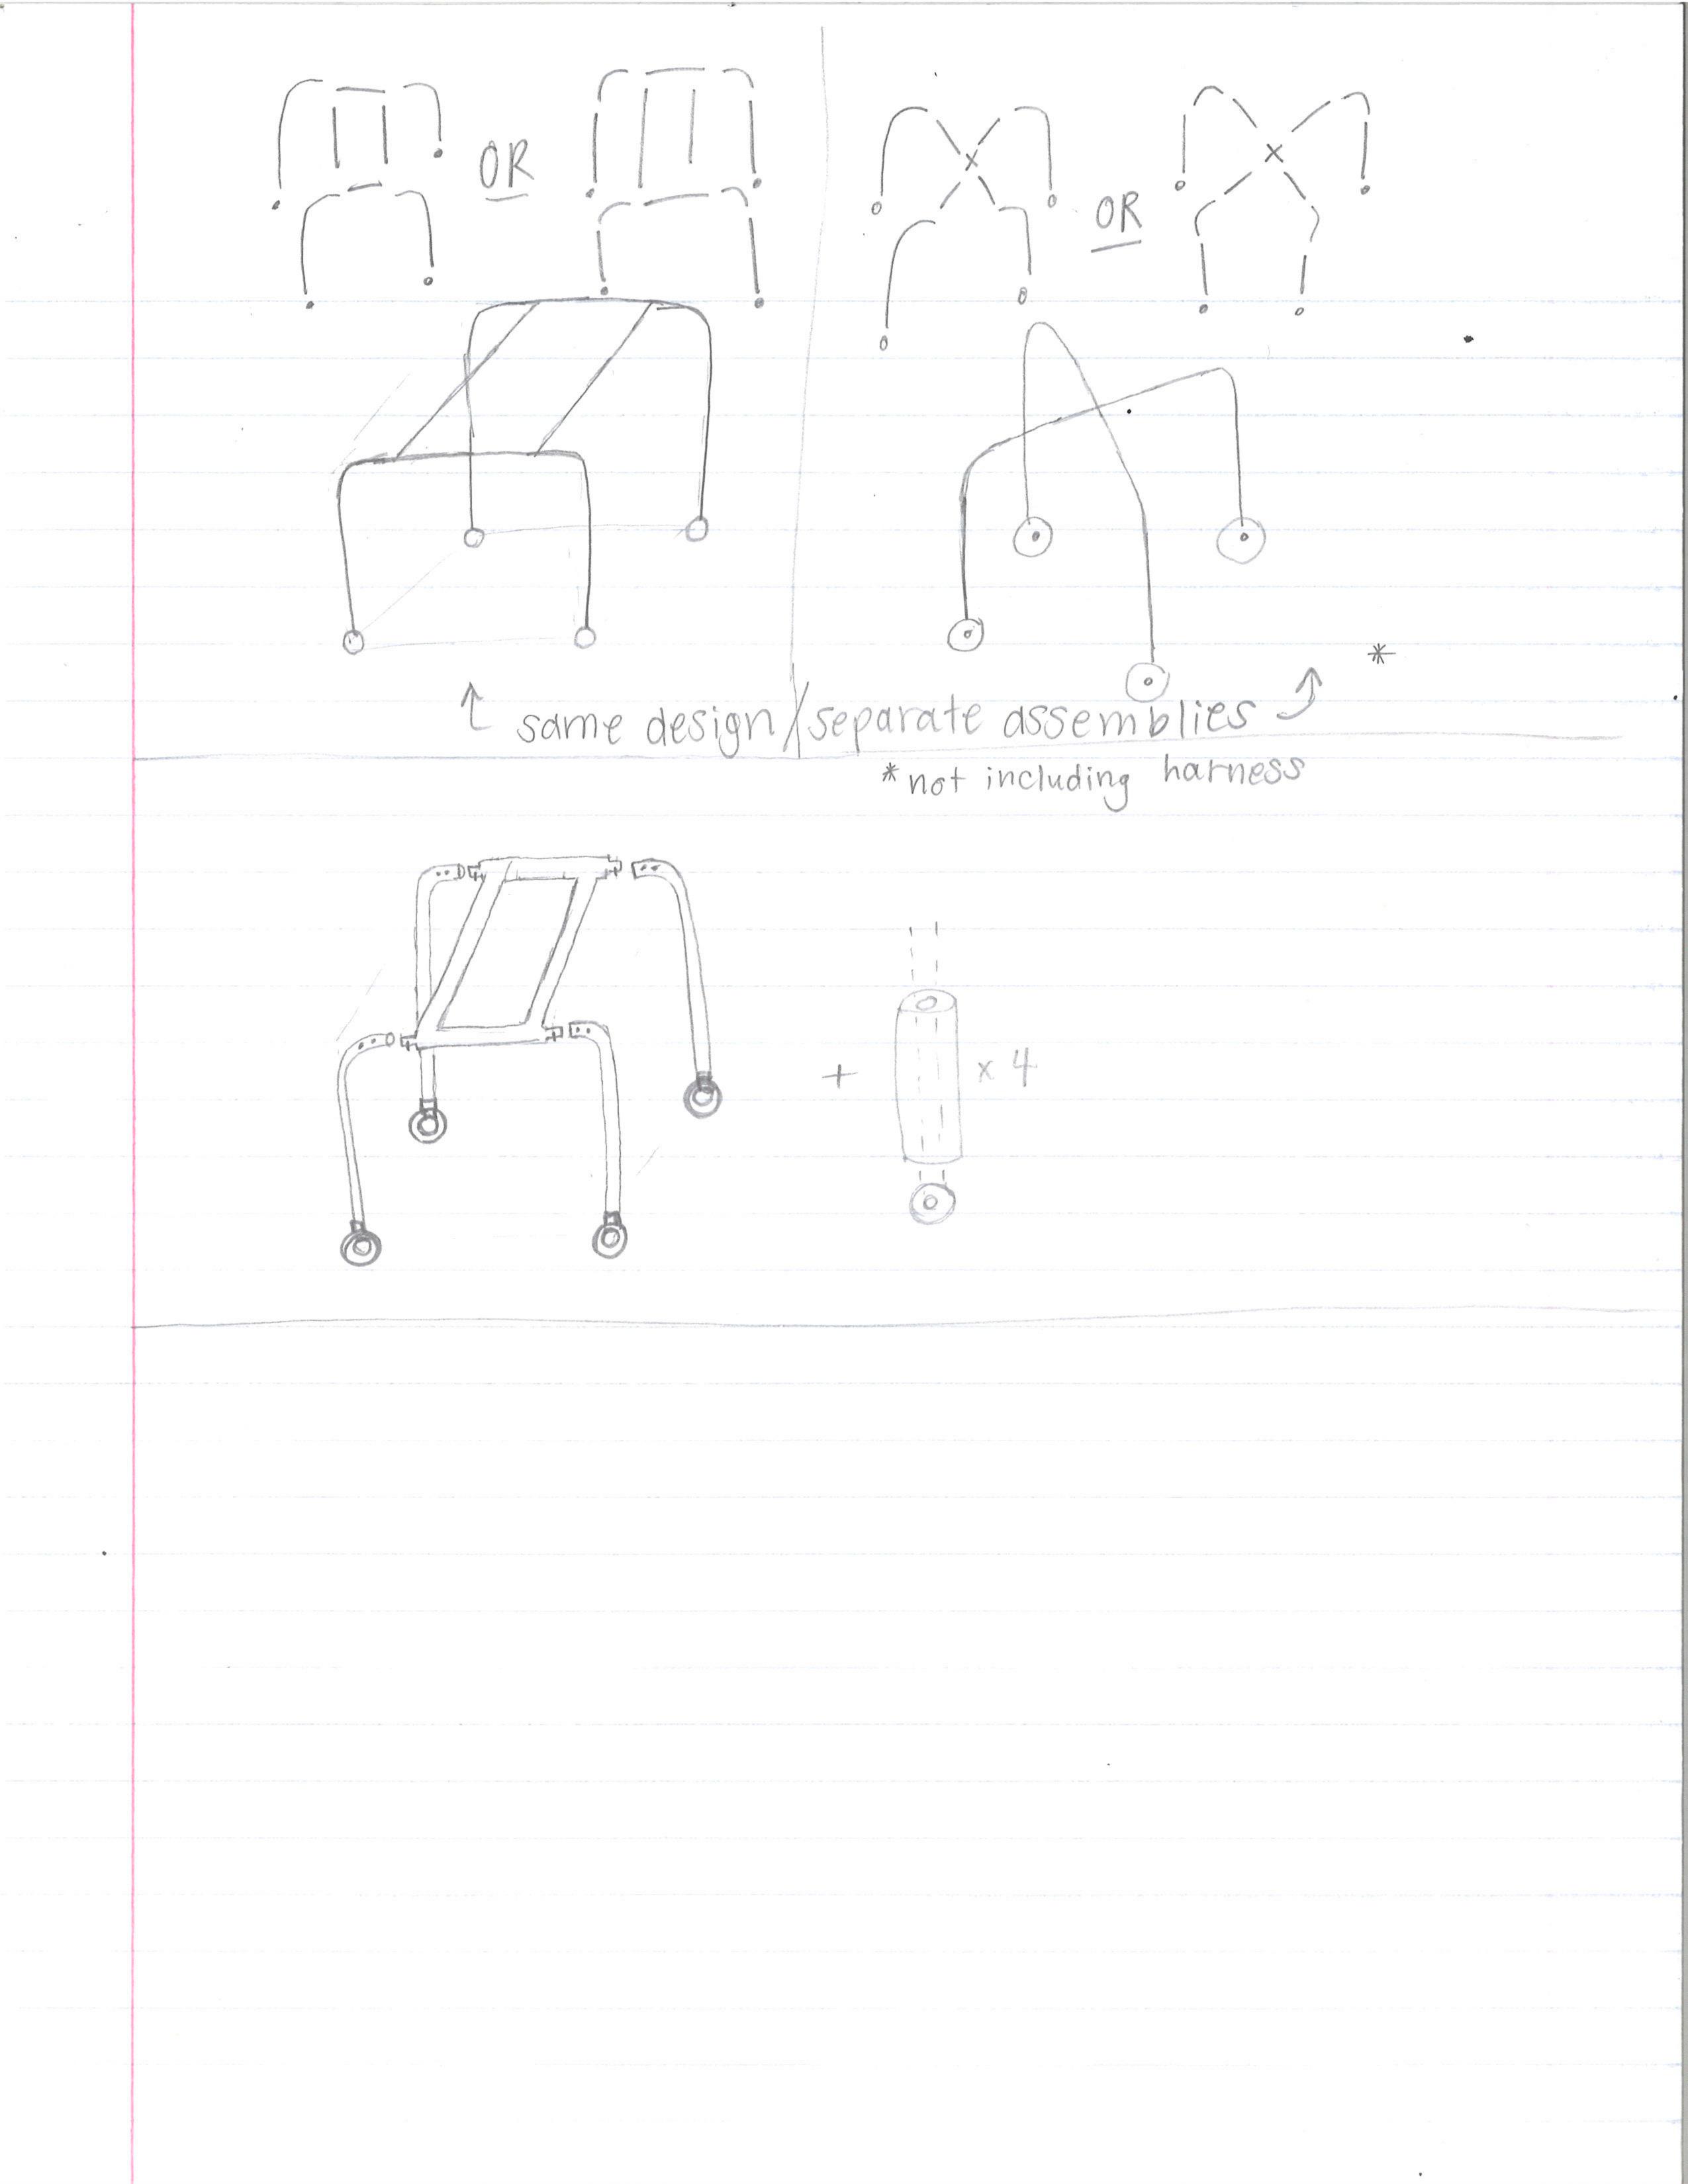 OR
OR
↑ same design/separate assemblies ⤴ *
*not including harness
+ x 4